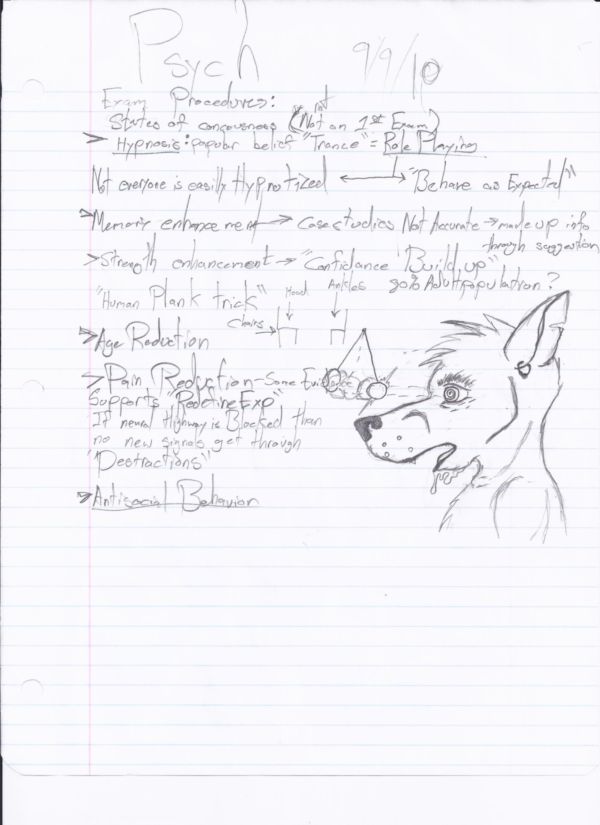 Psych 9/9/10
Exam Procedures:
States of conçousness (Not on 1st Exam)
not
> Hypnosis: popular belief "Trance" = Role Playing
Not everyone is easily Hypnotized ↔ "Behave as Expected"
> Memory enhancement → Case studies Not Accurate → made up info
through suggestion
> Strength enhancement → "Confidance Build up"
"Human Plank trick" Head Ankles 90% Adult population?
chairs
> Age Reduction
> Pain Reduction - Some Evidence
Supports "Redefine Exp"
If neural Highway is Blocked than
no new signals get through
"Destractions"
> Antisocial Behavior